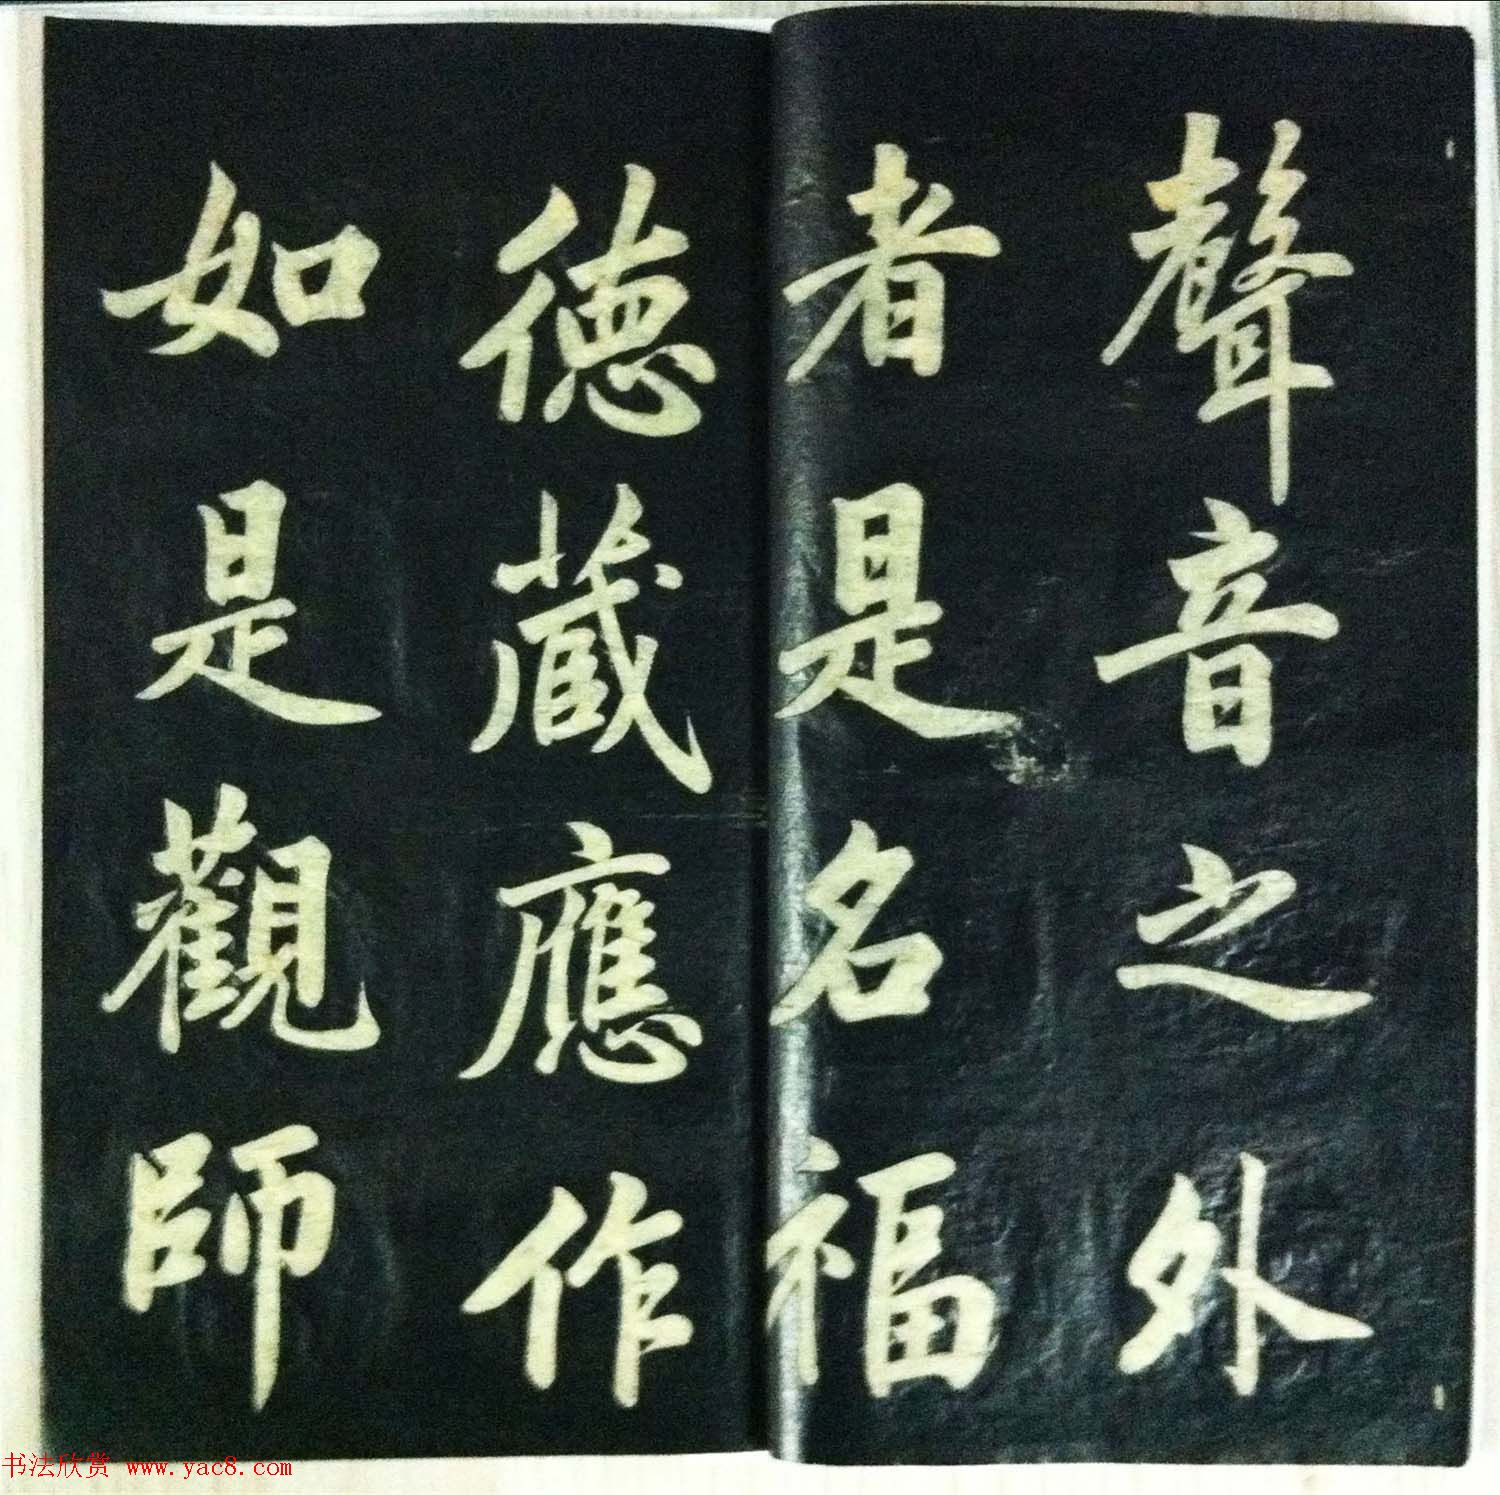 聲音之外
者是名福
德藏應作
如是觀師
书法欣赏 www.yac8.com